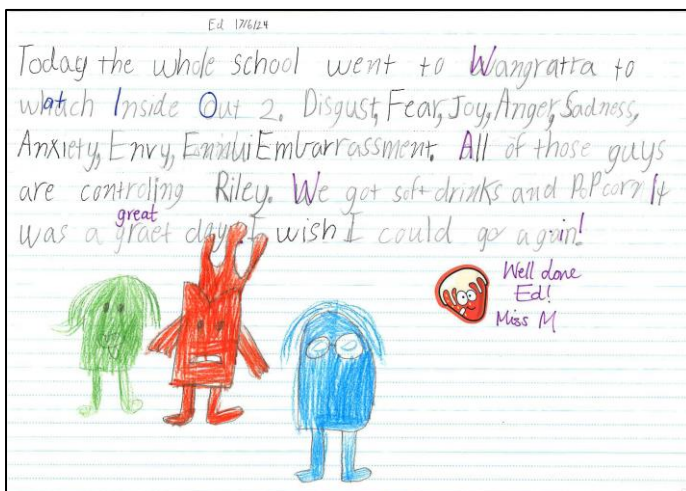 Ed 17/6/24
Today the whole school went to Wangratta to
watch Inside Out 2. Disgust, Fear, Joy, Anger, Sadness,
Anxiety, Envy, Ennui Embarrassment. All of those guys
are controling Riley. We got soft drinks and PoPcorn It
great
was a graet day. I wish I could go again!
Well done
Ed!
Miss M